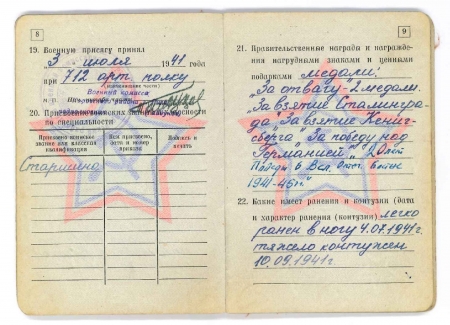 8
19. Военную присягу принял
"3" июля 1941 года
при 712 арт. полку
(наименование части)
Военный комисс
20. Присвоено воинских званий
по специальности
Присвоено воинское
звание или классная
квалификация
Чем присвоено,
дата и номер
приказа
Подпись и
печать
Старшина
9
21. Правительственные награды и награждения
нагрудными знаками и ценными
подарками медали:
"За отвагу"-2 медали.
"За взятие Сталингра-
да" За взятие Кениг-
сберга" За победу над
Германией", "20 лет
Победы в Вел. Отеч. Войне
1941-45гг"
22. Какие имеет ранения и контузии (дата
и характер ранения (контузии) легко
ранен в ногу 4.07.1941г.
тяжело контужен
10.09.1941г